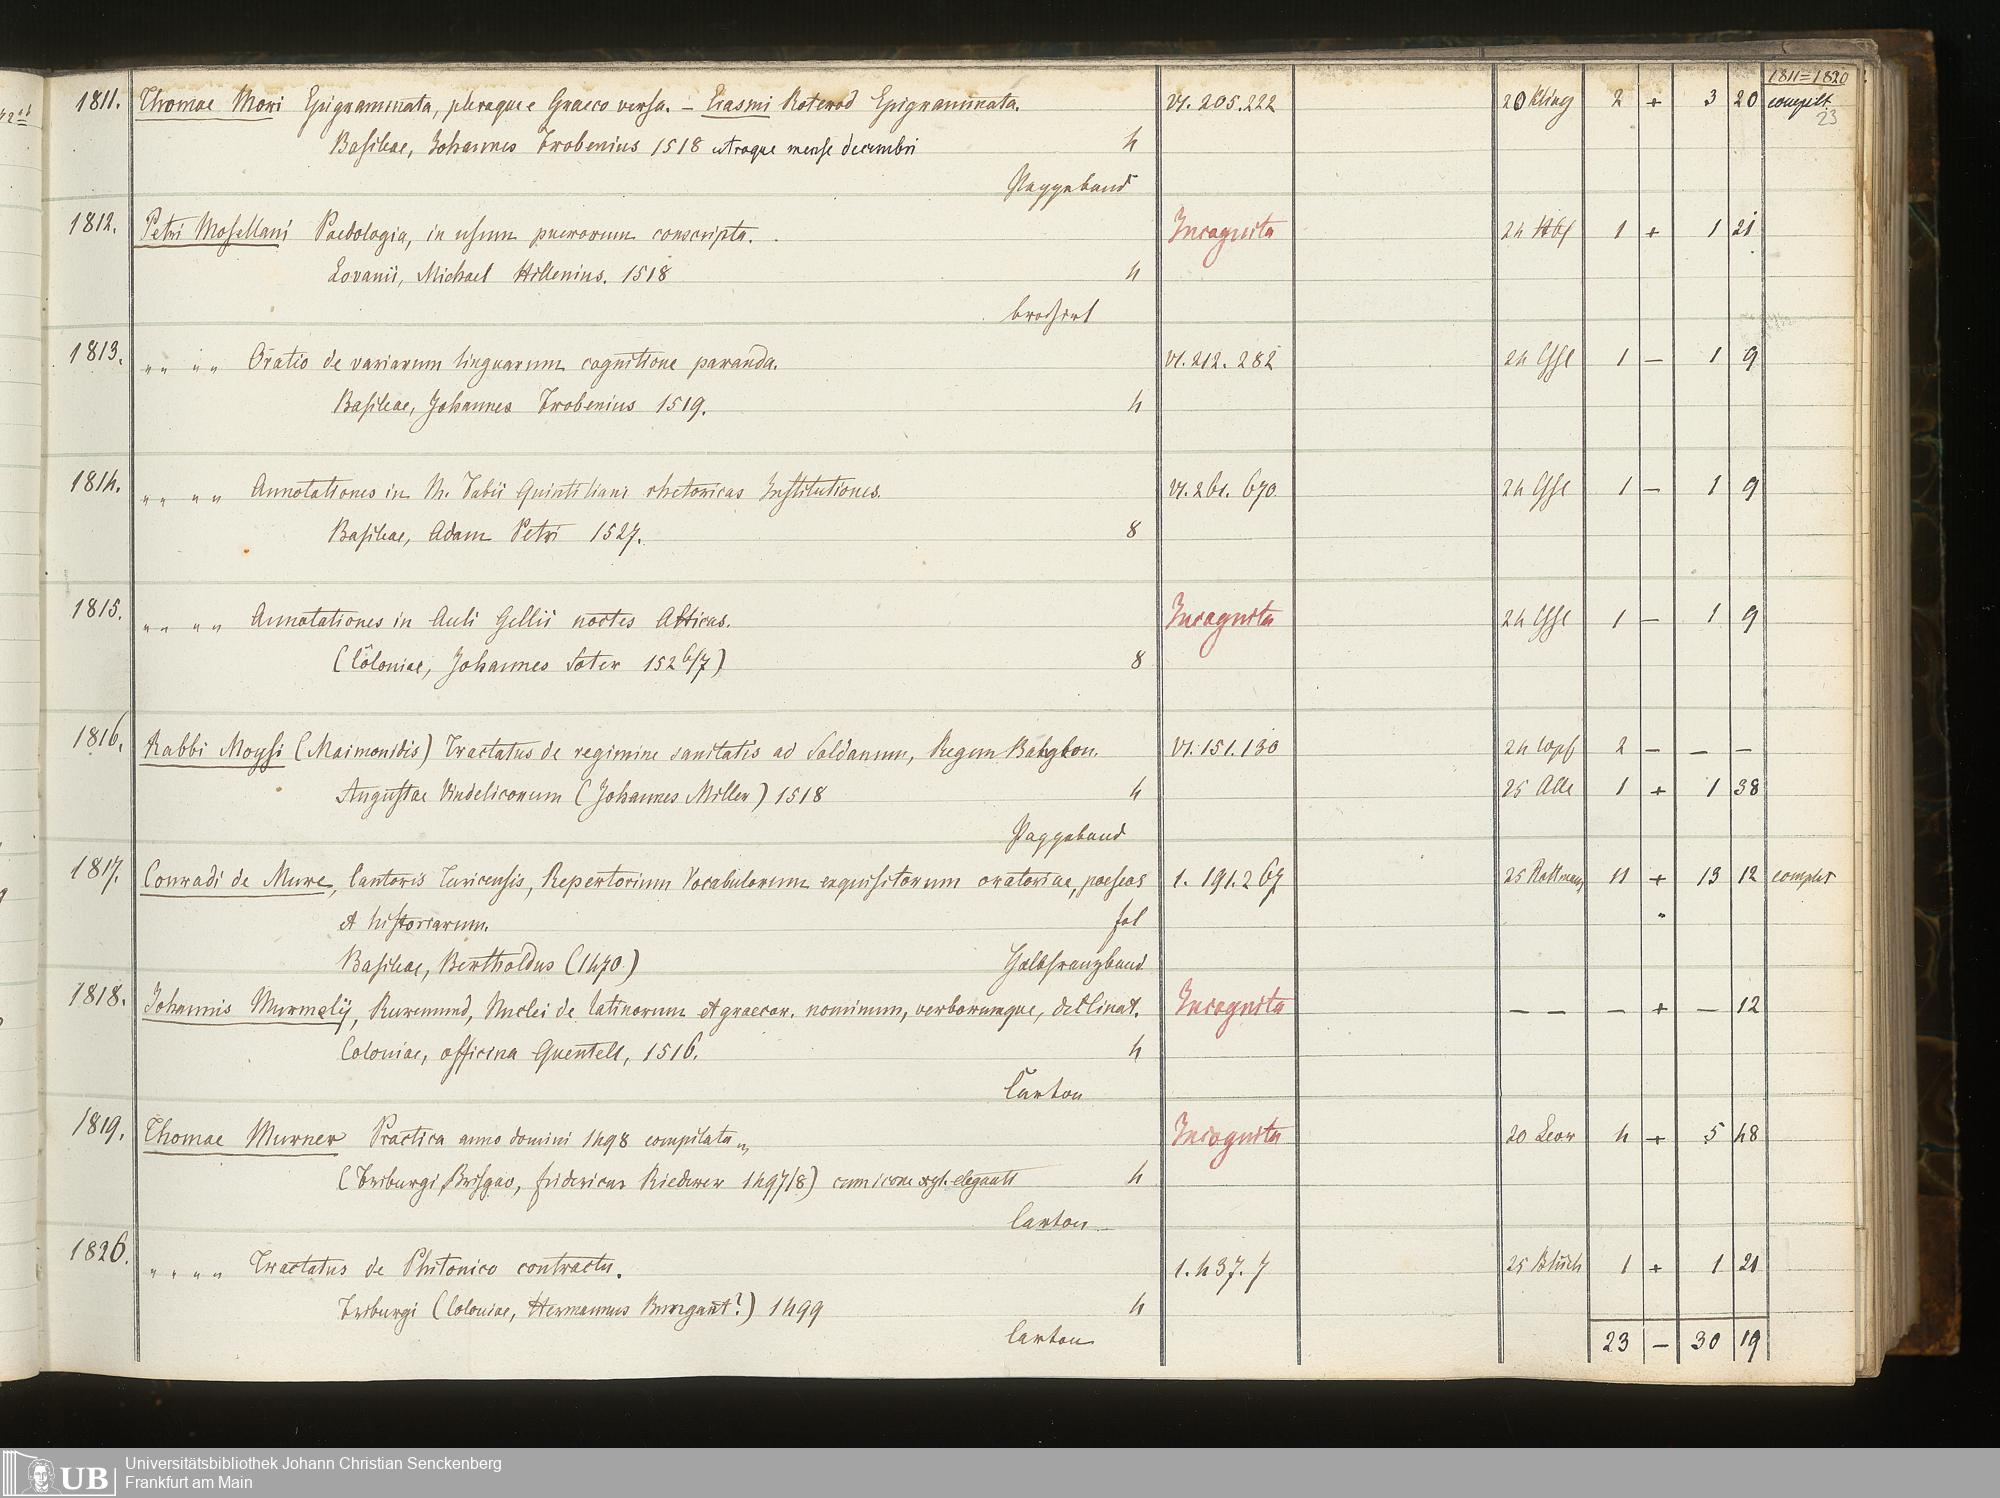 1811=1820
1811. Thomae Mori Epigrammata, pleraque e Graeco versa. – Erasmi Roterod Epigrammata. VI. 205.222 20 2 + 3 20 complt.
23
Basileae, Johannes Frobenius 1518 utraque mense decembri 4
Pappband
1812. Petri Mosellani Paedologia, in usum puerorum conscripta. Incognita 24 1 + 1 21
Lovanii, Michael Hillenius. 1518 4
broschirt
1813. „ „ „ „ Oratio de variarum linguarum cognitione paranda. VI. 212. 282 24 1 – 1 9
Basileae, Johannes Frobenius 1519. 4
1814. „ „ „ „ Annotationes in M. Fabii Quintiliani rhetoricas Institutiones. VI. 261. 670 24 1 – 1 9
Basileae, Adam Petri 1527. 8
1815. „ „ „ „ Annotationes in Auli Gellii noctes Atticas. Incognita 24 1 – 1 9
(Coloniae, Johannes Soter 1526/7) 8
1816. Rabbi Moysi (Maimonidis) Tractatus de regimine sanitatis ad Soldanum, Regem Babylon. VI. 151. 130 24 2 – – –
Augustae Vindelicorum (Johannes Miller) 1518 4 25 1 + 1 38
Pappband
1817. Conradi de Mure, Cantoris Turicensis, Repertorium Vocabulorum exquisitorum oratoriae, poeseos 1. 191. 267 25 11 + 13 12 complet
et historiarum. fol „
Basileae, Bertholdus (1470) Halbfranzband
1818. Johannis Murmelij, Ruremund, Nuclei de latinorum et graecor. nominum, verborumque, declinat. Incognita – – – + – 12
Coloniae, officina Quentell, 1516. 4
Carton
1819. Thomae Murner Practica anno domini 1498 compilata „ Incognita 20 4 + 5 48
(Friburgi Brisgav, fridericus Riederer 1497/8) cum icone xyl. eleganti 4
Carton
1820. „ „ „ „ Tractatus de Phitonico contractu. 1. 437. 7 25 1 + 1 21
Friburgi (Coloniae, Hermannus Bumgart?) 1499 4
Carton 23 – 30 19
UB Universitätsbibliothek Johann Christian Senckenberg
Frankfurt am Main